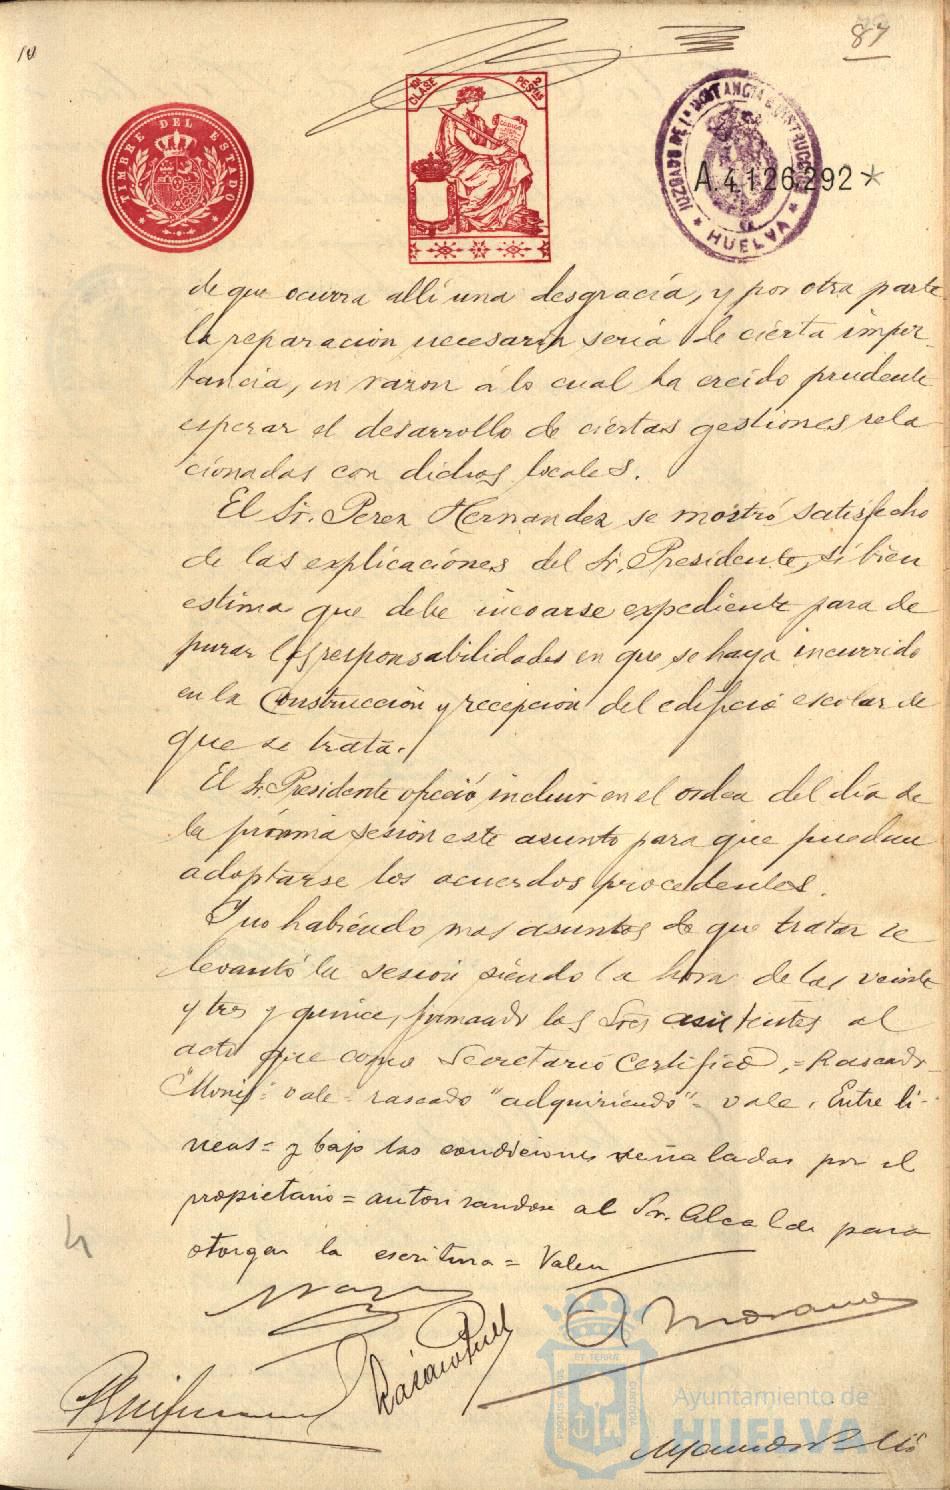 87
TIMBRE DEL ESTADO
10ª CLASE 2 PESETAS
JUZGADO DE 1ª INSTANCIA E INSTRUCCION
HUELVA
A.4126292*
de que ocurra allí una desgracia, y por otra parte
la reparacion necesaria seria de cierta impor-
tancia, en razon á lo cual ha creido prudente
esperar el desarrollo de ciertas gestiones rela
cionadas con dichos locales.
El Sr. Perez Hernandez se mostró satisfecho
de las explicaciónes del Sr. Presidente, si bien
estima que debe incoarse expediente para de
purar las responsabilidades en que se haya incurrido
en la Construcción y recepcion del edificio escolar de
que se trata.
El Sr. Presidente ofreció incluir en el orden del día de
la próxima sesión este asunto para que puedan
adoptarse los acuerdos procedentes.
Y no habiendo mas asuntos de que tratar se
levantó la sesion siendo la hora de las veinte
y tres y quince, firmando los Sres asistentes al
acto que como Secretario Certifico.=Rascado
vale=rascado "adquiriendo"=vale. Entre lí-
neas=y bajo las condiciones señaladas por el
propietario=autorizandose al Sr. Alcalde para
otorgar la escritura=Valen
Ayuntamiento de
HUELVA